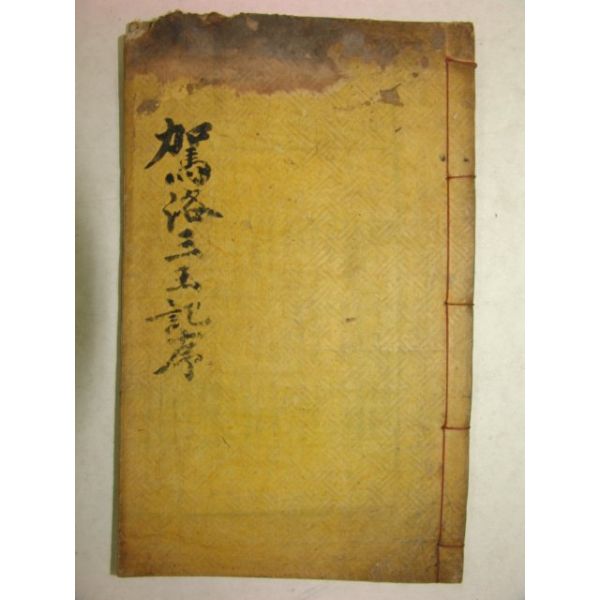 駕洛三王記序